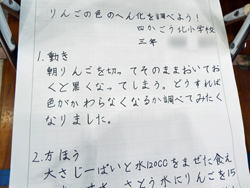 りんごの色のへん化を調べよう！
四かごう北小学校
三年
1. 動き
朝りんごを切ってそのままおいてお
くと黒くなってしまう。どうすれば
色がかわらなくなるか調べてみたく
なりました。
2. 方ほう
大さじ一ぱいと水120CCをまぜた食え
さとう水にりんごを15